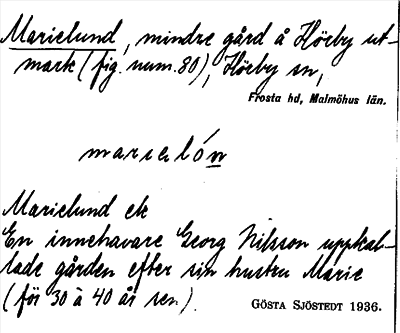 Marielund, mindre gård å Hörby ut-
mark (fig. num. 80), Hörby sn,
Frosta hd, Malmöhus län.
marielón
Marielund ek
En innehavare Georg Nilsson uppkal-
lade gården efter sin hustru Marie
(för 30 à 40 år sen).
GÖSTA SJÖSTEDT 1936.